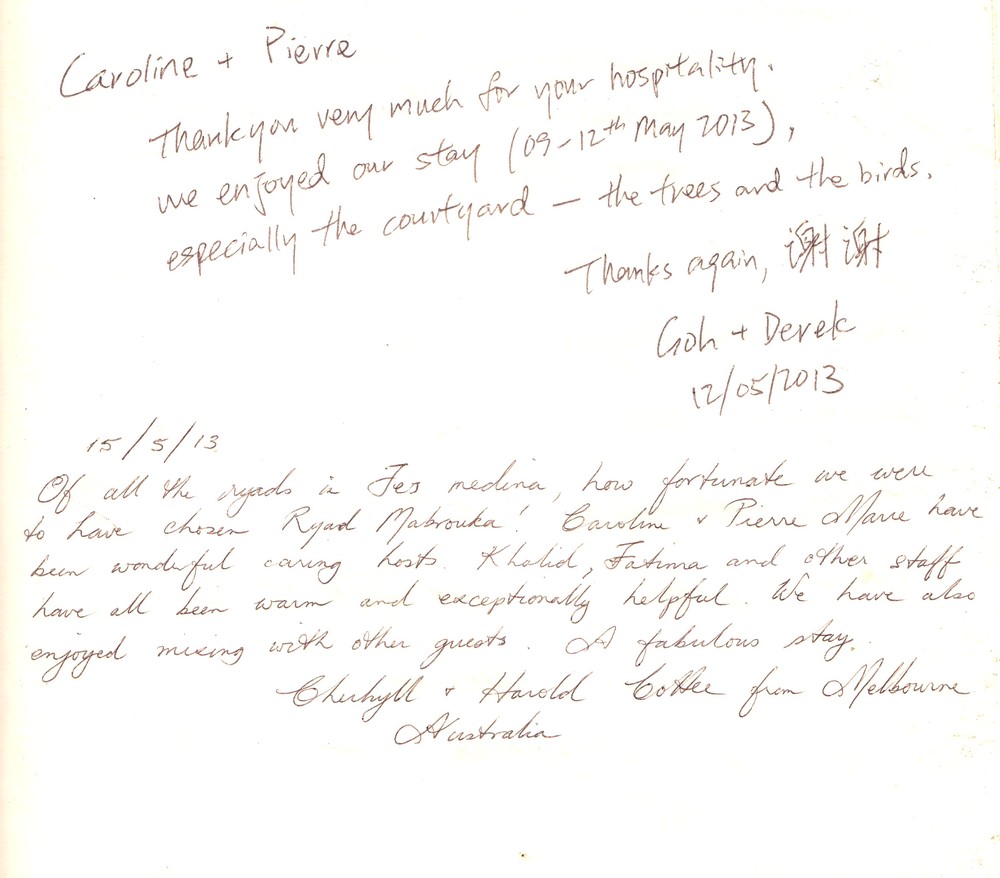 Caroline + Pierre
Thank you very much for your hospitality.
we enjoyed our stay (09-12th May 2013),
especially the courtyard — the trees and the birds.
Thanks again, 谢谢
Goh + Derek
12/05/2013
15/5/13
Of all the ryads in Fes medina, how fortunate we were
to have chosen Ryad Mabrouka! Caroline & Pierre Marie have
been wonderful caring hosts. Khalid, Fatima and other staff
have all been warm and exceptionally helpful. We have also
enjoyed mixing with other guests. A fabulous stay.
& Harold from Melbourne
Australia